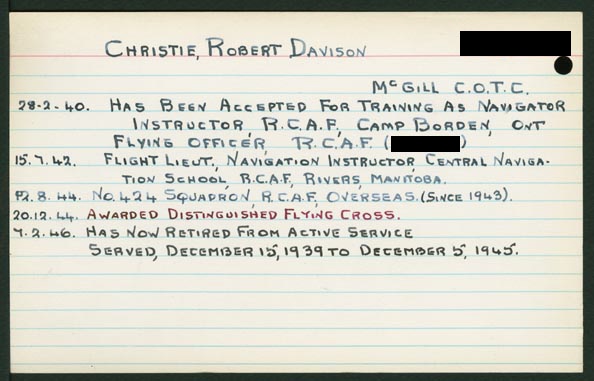 CHRISTIE, ROBERT DAVISON
McGILL C.O.T.C.
28-2-40. HAS BEEN ACCEPTED FOR TRAINING AS NAVIGATOR
INSTRUCTOR, R.C.A.F., CAMP BORDEN, ONT
FLYING OFFICER, R.C.A.F. ( )
15.7.42. FLIGHT LIEUT., NAVIGATION INSTRUCTOR, CENTRAL NAVIGA-
TION SCHOOL, R.C.A.F., RIVERS, MANITOBA.
8.44. No. 424 SQUADRON, R.C.A.F., OVERSEAS. (SINCE 1943).
20.12.44. AWARDED DISTINGUISHED FLYING CROSS.
7.2.46. HAS NOW RETIRED FROM ACTIVE SERVICE
SERVED, DECEMBER 15, 1939 TO DECEMBER 5, 1945.